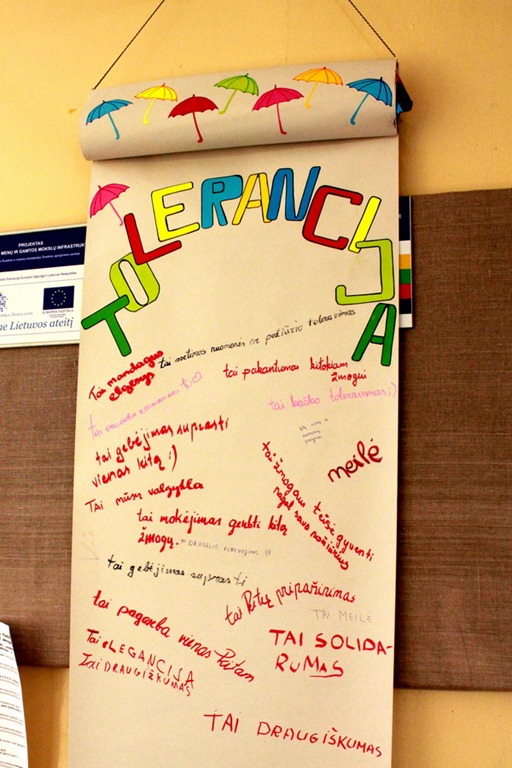 TOLERANCIJA
PROJEKTAS
MENŲ IR GAMTOS MOKSLŲ INFRASTRUK
ne Lietuvos ateitį
tai svetimos nuomonės ar požiūrio toleravimas
Tai mandagus
elgesys
tai pakantumas kitokiam
žmogui
tai kažko toleravimas :)
tai gebėjimas suprasti
vienas kitą :)
meilė
tai žmogaus teisė gyventi
pagal savo
Tai mūsų valgykla
tai mokėjimas gerbti kitą
žmogų.
tai gebėjimas suprasti
tai kitų pripažinimas
TAI MEILĖ
tai pagarba vienas kitam
TAI SOLIDA-
RUMAS
Tai eLEGANCIJA
TAI DRAUGIŠKUMAS
TAI DRAUGIŠKUMAS